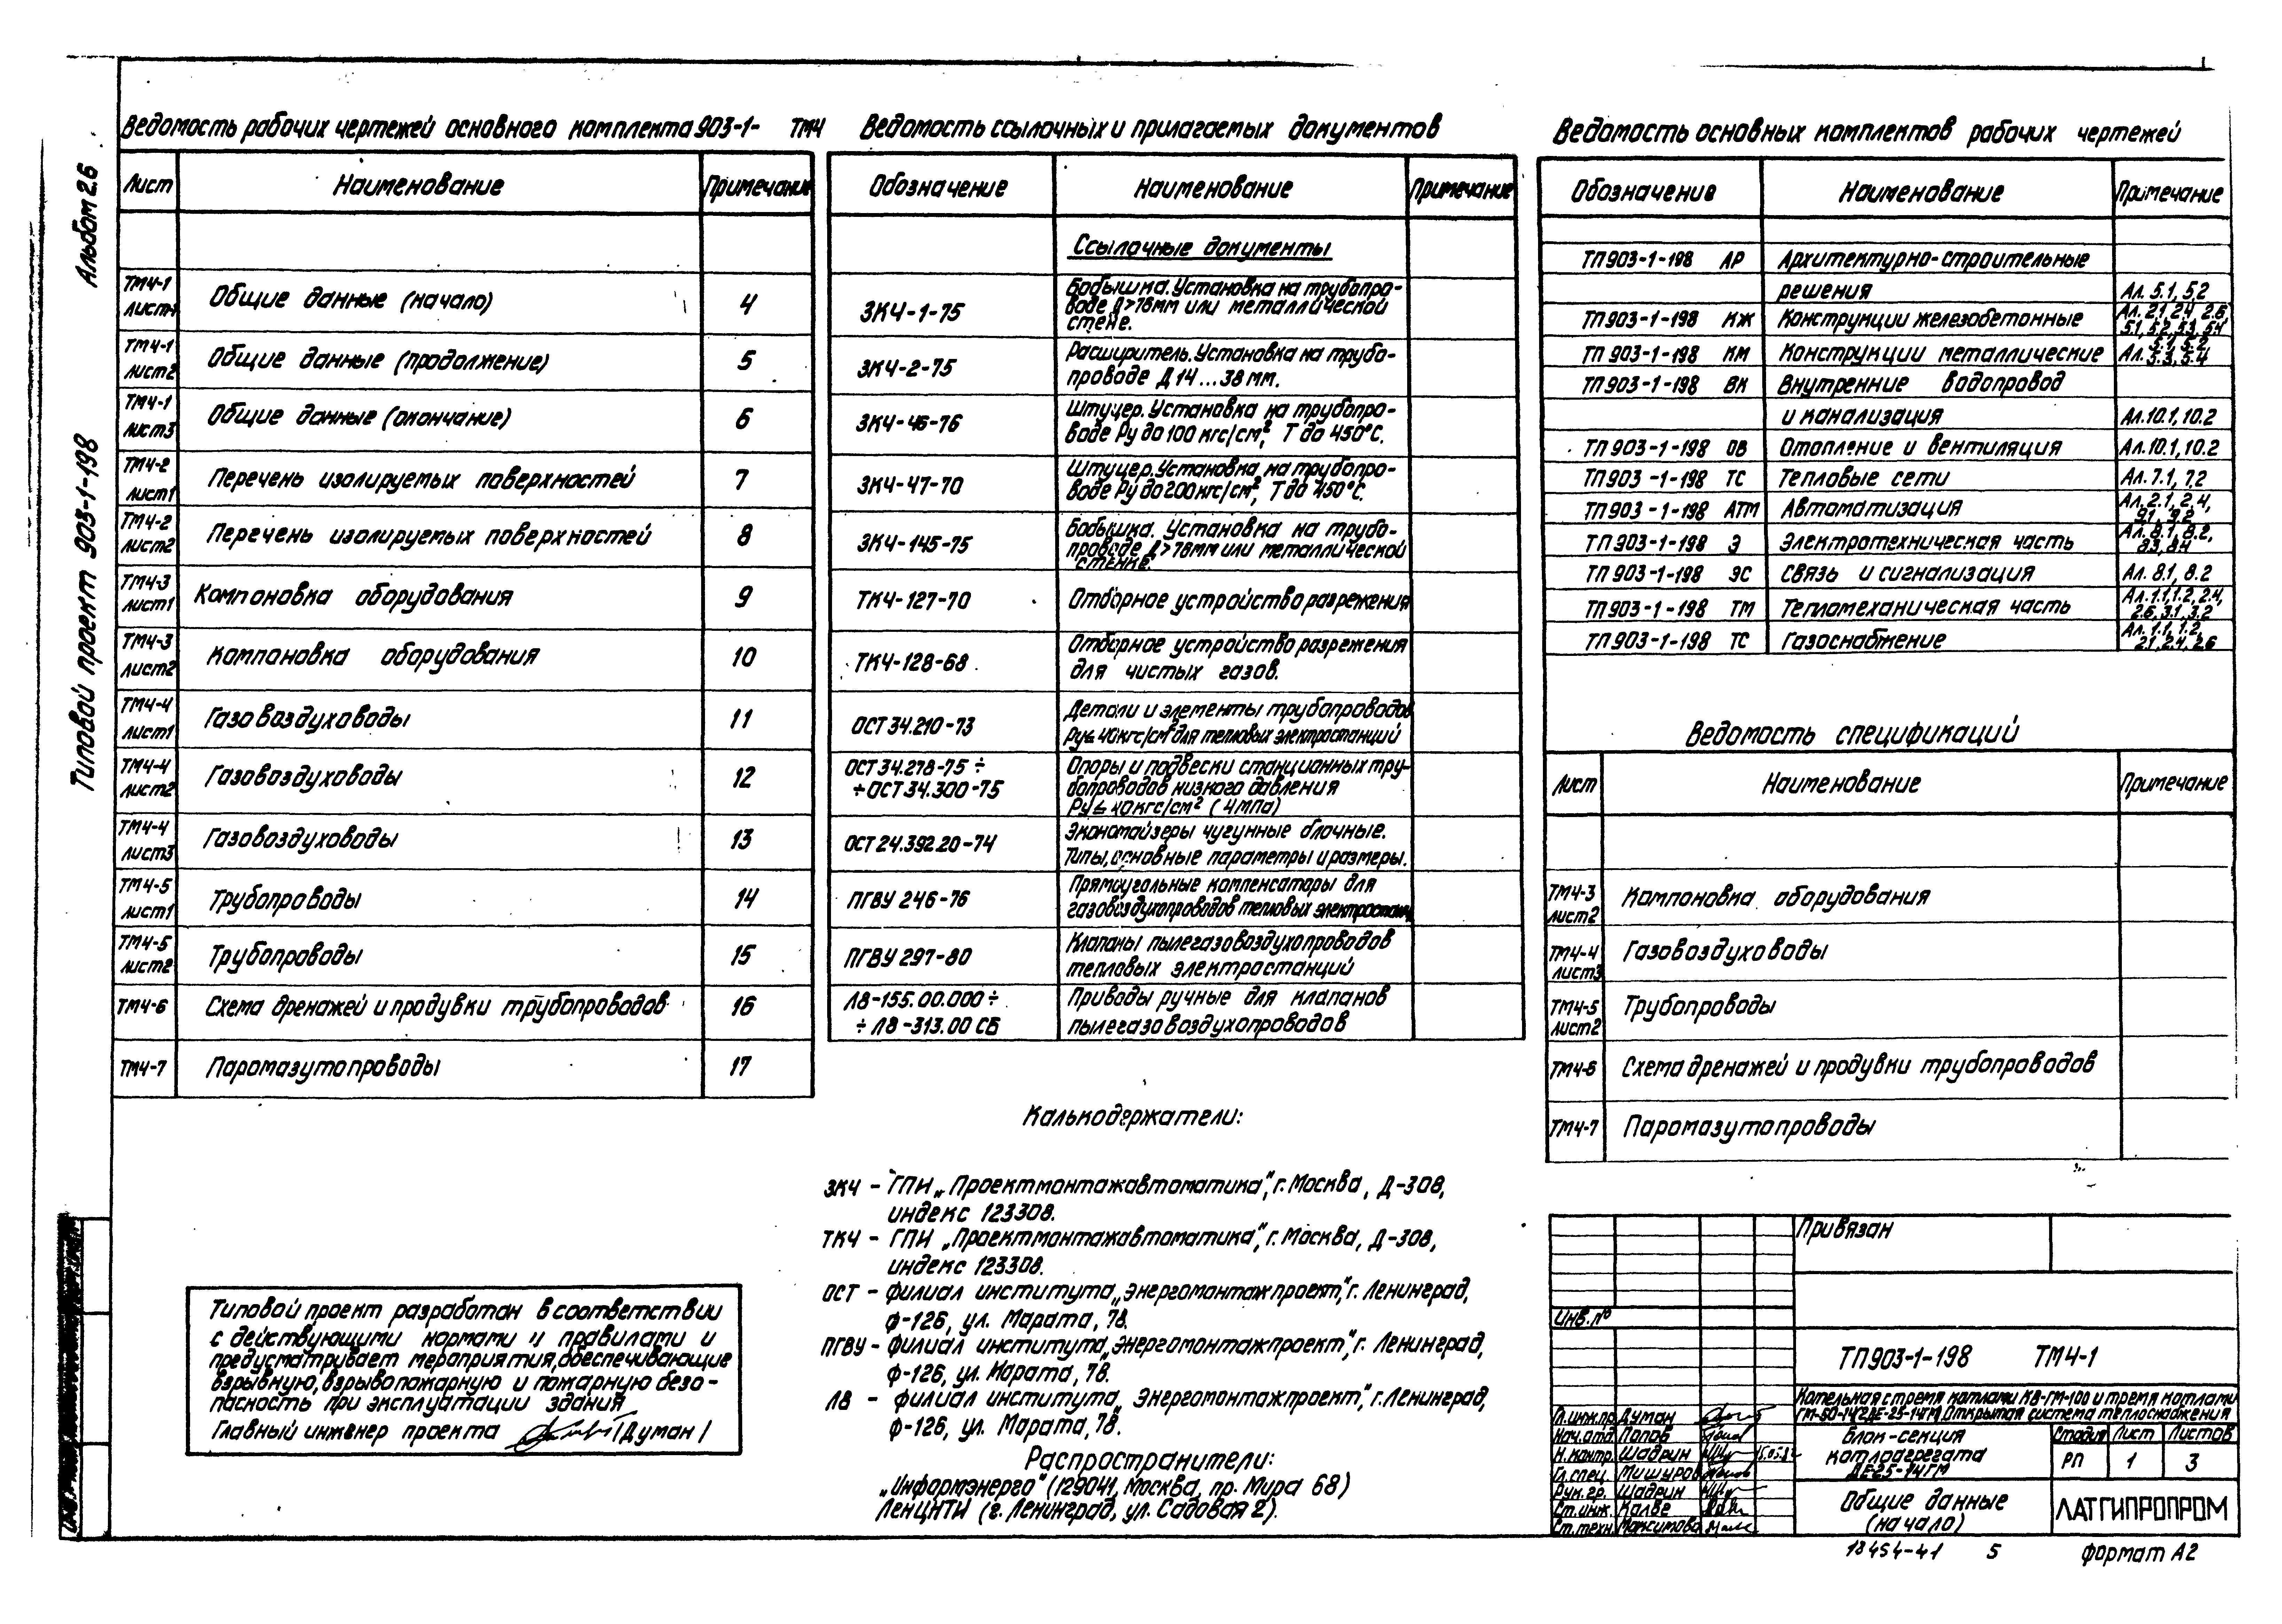 Альбом 2.6
Типовой проект 903-1-198
Ведомость рабочих чертежей основного комплекта 903-1- ТМ4
Лист Наименование Примечание
ТМ4-1 лист1 Общие данные (начало) 4
ТМ4-1 лист2 Общие данные (продолжение) 5
ТМ4-1 лист3 Общие данные (окончание) 6
ТМ4-2 лист1 Перечень изолируемых поверхностей 7
ТМ4-2 лист2 Перечень изолируемых поверхностей 8
ТМ4-3 лист1 Компоновка оборудования 9
ТМ4-3 лист2 Компоновка оборудования 10
ТМ4-4 лист1 Газовоздуховоды 11
ТМ4-4 лист2 Газовоздуховоды 12
ТМ4-4 лист3 Газовоздуховоды 13
ТМ4-5 лист1 Трубопроводы 14
ТМ4-5 лист2 Трубопроводы 15
ТМ4-6 Схема дренажей и продувки трубопроводов 16
ТМ4-7 Паромазутопроводы 17
Типовой проект разработан в соответствии
с действующими нормами и правилами и
предусматривает мероприятия, обеспечивающие
взрывную, взрывопожарную и пожарную безо-
пасность при эксплуатации здания
Главный инженер проекта /Думан/
Ведомость ссылочных и прилагаемых документов
Обозначение Наименование Примечание
Ссылочные документы
ЗК4-1-75 Бобышка. Установка на трубопро-
воде Д>76мм или металлической
стене.
ЗК4-2-75 Расширитель. Установка на трубо-
проводе Д 14...38 мм.
ЗК4-46-76 Штуцер. Установка на трубопро-
воде Ру до 100 кгс/см², Т до 450°С.
ЗК4-47-70 Штуцер. Установка на трубопро-
воде Ру до 200 кгс/см², Т до 450°С.
ЗК4-145-75 Бобышка. Установка на трубо-
проводе Д>76мм или металлической
стенке.
ТК4-127-70 Отборное устройство разрежения
ТК4-128-68 Отборное устройство разрежения
для чистых газов.
ОСТ 34.210-73 Детали и элементы трубопроводов
Ру≤40кгс/см² для тепловых электростанций
ОСТ 34.278-75 ÷ Опоры и подвески станционных тру-
÷ ОСТ 34.300-75 бопроводов низкого давления
Ру≤40кгс/см² (4МПа)
ОСТ 24.392.20-74 Экономайзеры чугунные блочные.
Типы, основные параметры и размеры.
ПГВУ 246-76 Прямоугольные компенсаторы для
газовоздухопроводов тепловых
ПГВУ 297-80 Клапаны пылегазовоздухопроводов
тепловых электростанций
Л8-155.00.000 ÷ Приводы ручные для клапанов
÷ Л8-313.00 СБ пылегазовоздухопроводов
Калькодержатели:
ЗК4 - ГПИ „Проектмонтажавтоматика", г. Москва, Д-308,
индекс 123308.
ТК4 - ГПИ „Проектмонтажавтоматика", г. Москва, Д-308,
индекс 123308.
ОСТ - филиал института „Энергомонтажпроект", г. Ленинград,
Ф-126, ул. Марата, 78.
ПГВУ - филиал института „Энергомонтажпроект", г. Ленинград,
Ф-126, ул. Марата, 78.
Л8 - филиал института „Энергомонтажпроект", г. Ленинград,
Ф-126, ул. Марата, 78.
Распространители:
„Информэнерго" (129041, Москва, пр. Мира 68)
ЛенЦНТИ (г. Ленинград, ул. Садовая 2).
Ведомость основных комплектов рабочих чертежей
Обозначение Наименование Примечание
ТП 903-1-198 АР Архитектурно-строительные
решения Ал. 5.1, 5.2
ТП 903-1-198 КЖ Конструкции железобетонные Ал. 2.1, 2.4, 2.6,
5.1, 5.2, 5.3, 5.4
ТП 903-1-198 КМ Конструкции металлические Ал. 5.1, 5.2, 5.3, 5.4
ТП 903-1-198 ВК Внутренние водопровод
и канализация Ал. 10.1, 10.2
ТП 903-1-198 ОВ Отопление и вентиляция Ал. 10.1, 10.2
ТП 903-1-198 ТС Тепловые сети Ал. 7.1, 7.2
ТП 903-1-198 АТМ Автоматизация Ал. 2.1, 2.4,
9.1, 9.2
ТП 903-1-198 Э Электротехническая часть Ал. 8.1, 8.2,
8.3, 8.4
ТП 903-1-198 ЭС Связь и сигнализация Ал. 8.1, 8.2
ТП 903-1-198 ТМ Тепломеханическая часть Ал. 1.1, 1.2, 2.4,
2.6, 3.1, 3.2
ТП 903-1-198 ТС Газоснабжение Ал. 1.1, 1.2,
2.1, 2.4, 2.6
Ведомость спецификаций
Лист Наименование Примечание
ТМ4-3 лист2 Компоновка оборудования
ТМ4-4 лист3 Газовоздуховоды
ТМ4-5 лист2 Трубопроводы
ТМ4-6 Схема дренажей и продувки трубопроводов
ТМ4-7 Паромазутопроводы
Привязан
Инв. №
ТП 903-1-198 ТМ4-1
Котельная с тремя котлами КВ-ГМ-100 и тремя котлами
Открытая система теплоснабжения
Гл. инж. пр. Думан
Нач. отд. Попов
Н. контр. Шадрин
Гл. спец. Мишуров
Рук. гр. Шадрин
Ст. инж. Калве
Ст. техн. Максимова
Блок-секция
котлоагрегата
ДЕ-25-14ГМ
Стадия Лист Листов
РП 1 3
Общие данные
(начало)
ЛАТГИПРОПРОМ
18454-41 5 Формат А2